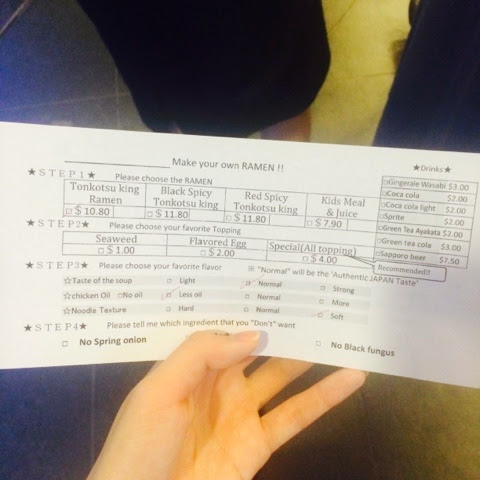 Make your own RAMEN !!
★STEP1★ Please choose the RAMEN
Tonkotsu king Ramen Black Spicy Tonkotsu king Red Spicy Tonkotsu king Kids Meal & Juice
□ $ 10.80 □ $ 11.80 □ $ 11.80 □ $ 7.90
★STEP2★ Please choose your favorite Topping
Seaweed Flavored Egg Special(All topping)
□ $ 1.00 □ $ 2.00 □ $ 4.00
Recommended!!
★STEP3★ Please choose your favorite flavor ※ "Normal" will be the 'Authentic JAPAN Taste'
☆Taste of the soup □ Light □ Normal □ Strong
☆chicken Oil □No oil □ Less oil □ Normal □ More
☆Noodle Texture □ Hard □ Normal □ Soft
★STEP4★ Please tell me which ingredient that you "Don't" want
□ No Spring onion □ No Black fungus
★Drinks★
□Gingerale Wasabi $3.00
□Coca cola $2.00
□Coca cola light $2.00
□Sprite $2.00
□Green Tea Ayakata $2.00
□Green tea cola $3.00
□Sapporo beer $7.50